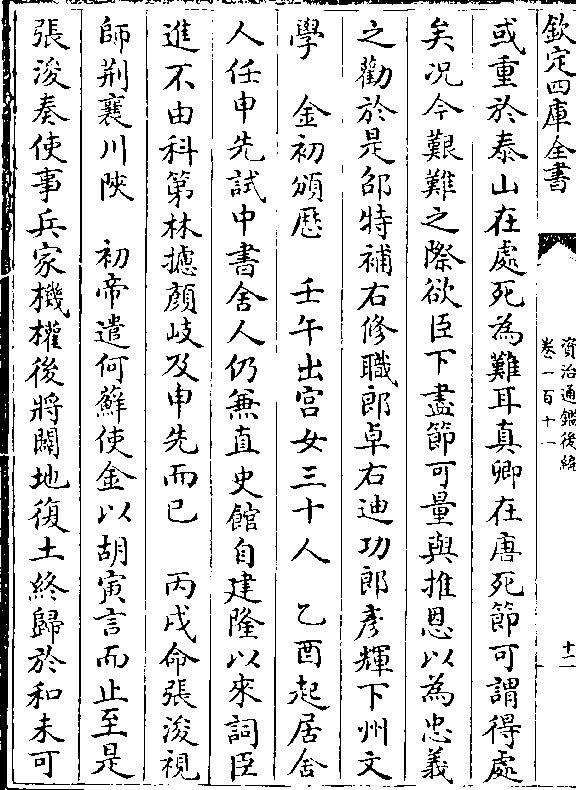 欽定四庫全書
資治通鑑後編
卷一百十一
十一
或重於泰山在處死為難耳真卿在唐死節可謂得處
矣况今艱難之際欲臣下盡節可量與推恩以為忠義
之勸於是邵特補右修職郎卓右迪功郎彥輝下州文
學　金初頒歷　壬午出宫女三十人　乙酉起居舍
人任申先試中書舍人仍兼直史館自建隆以來詞臣
進不由科第林攄顔岐及申先而已　丙戌命張浚視
師荆襄川陜　初帝遣何蘚使金以胡寅言而止至是
張浚奏使事兵家機權後將闢地復土終歸於和未可